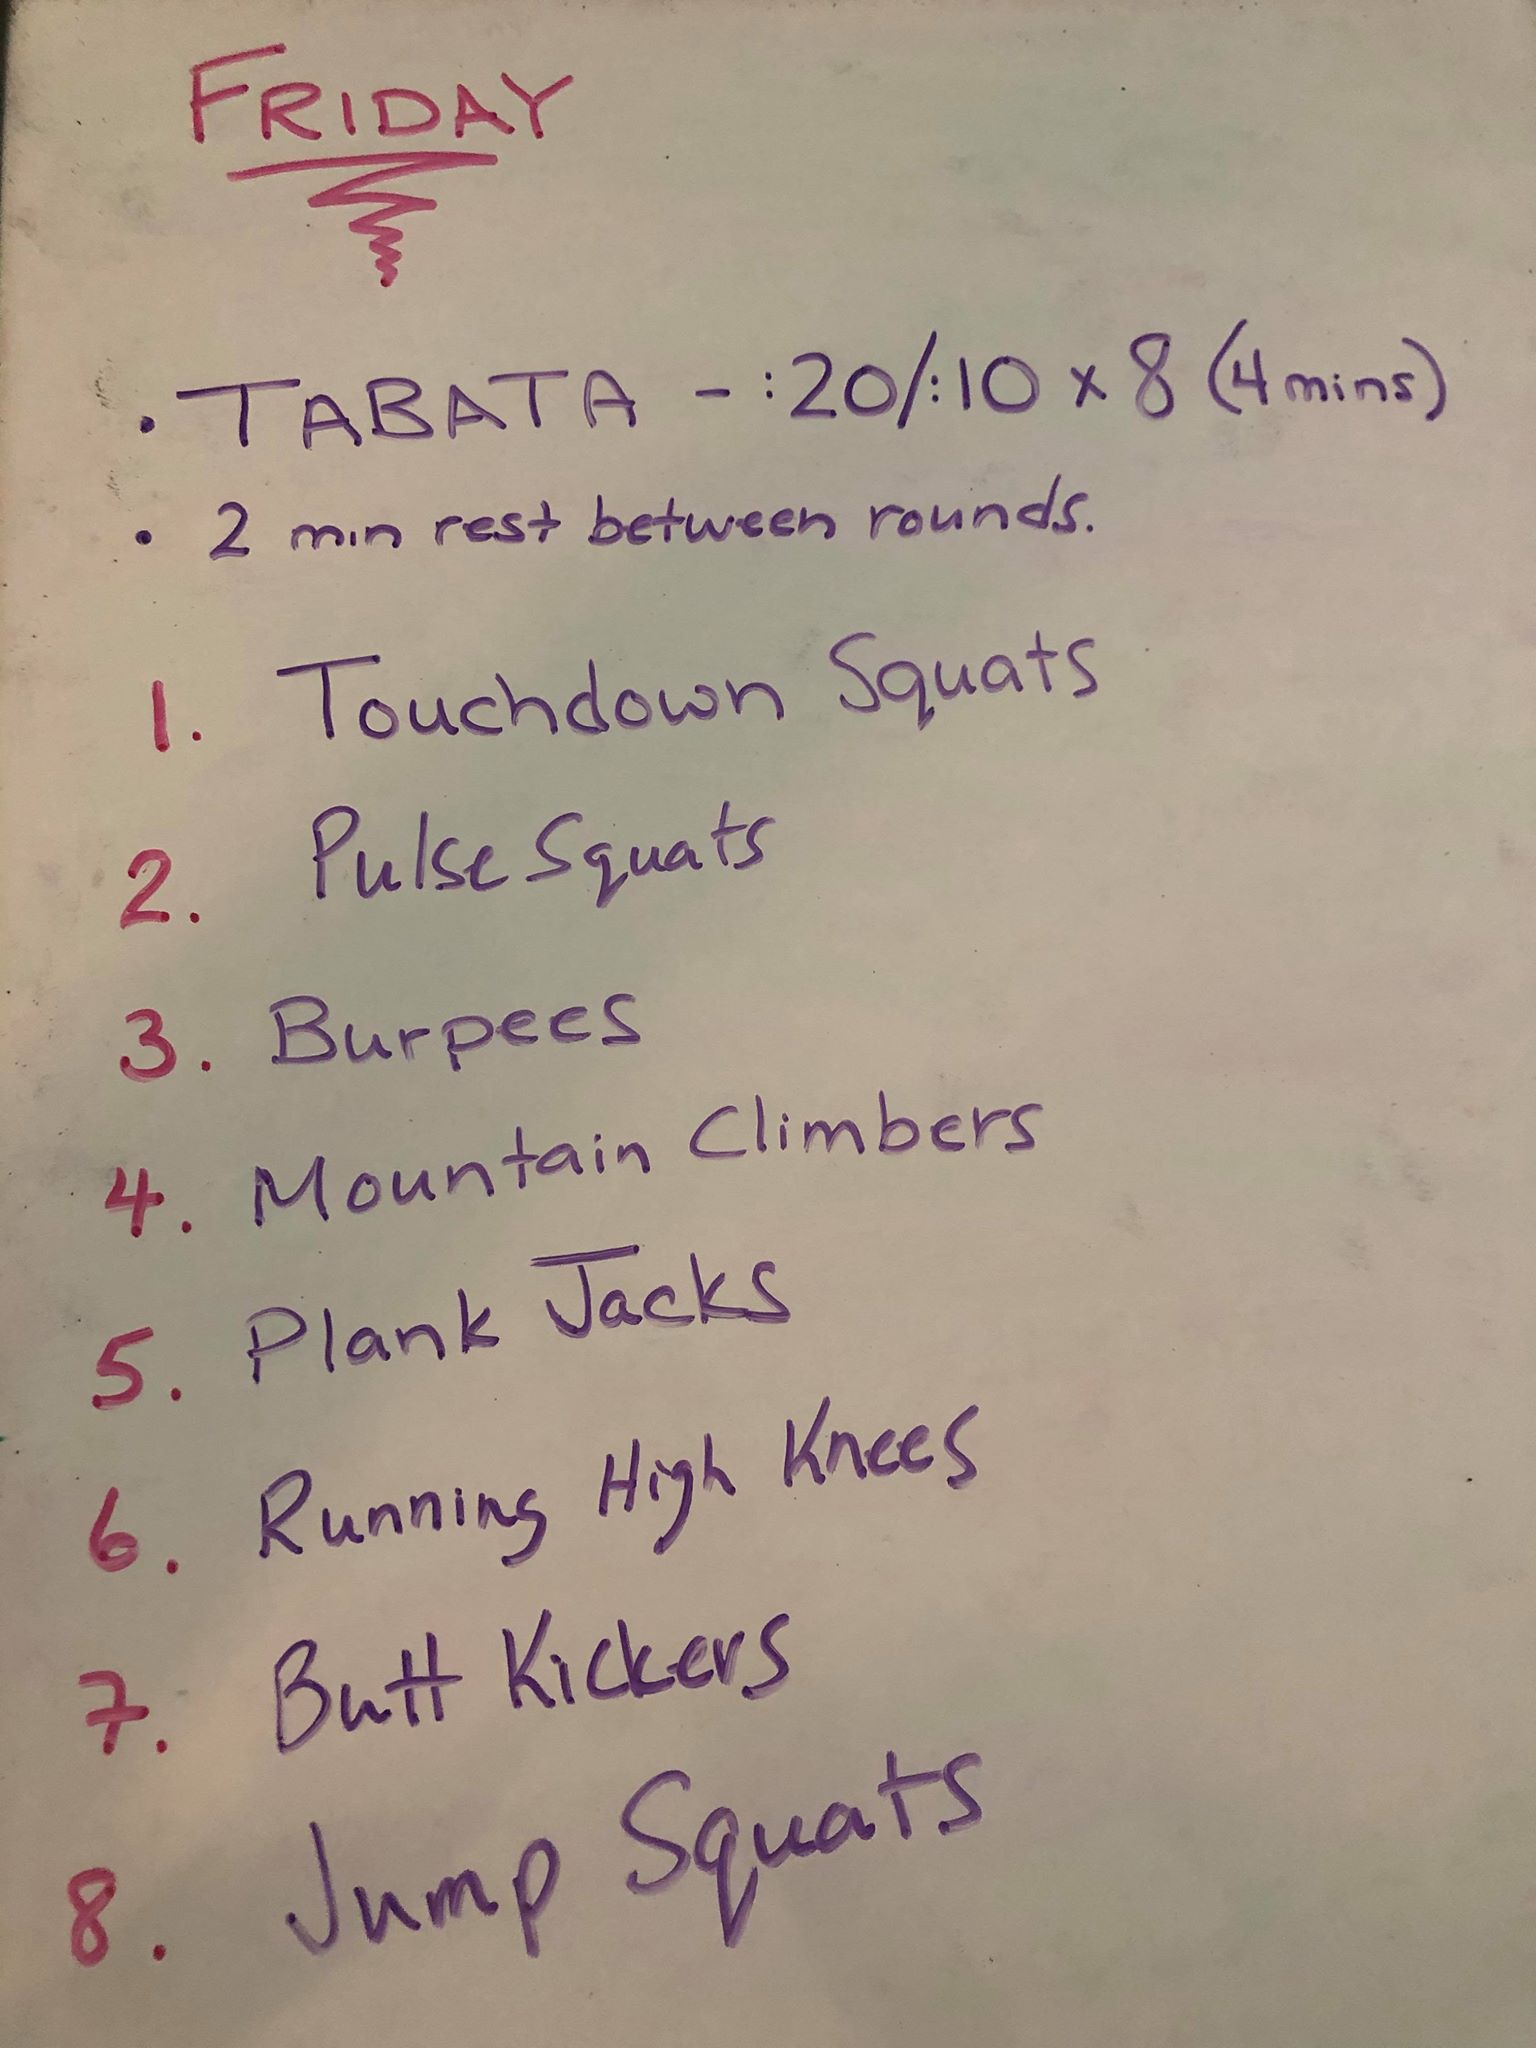 FRIDAY
• TABATA - :20/:10 x 8 (4 mins)
• 2 min rest between rounds.
1. Touchdown Squats
2. Pulse Squats
3. Burpees
4. Mountain Climbers
5. Plank Jacks
6. Running High Knees
7. Butt Kickers
8. Jump Squats